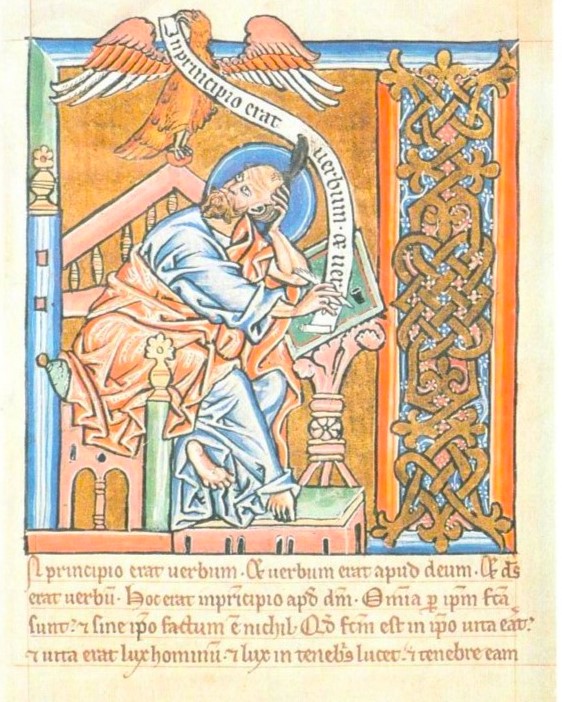 Inprincipio erat uerbum · & uer
N principio erat uerbum · & uerbum erat apud deum · & ds̄
erat uerbū · Hoc erat inprīcipio apđ dm̄ · Omīa ꝑ ipm̄ fcā
sunt: ⁊ sine ip̄o factum ē nichil · Qđ fcm̄ est in ip̄o uita eāt:
⁊ uita erat lux hominū · ⁊ lux in teneb̄s lucet · ⁊ tenebre eam